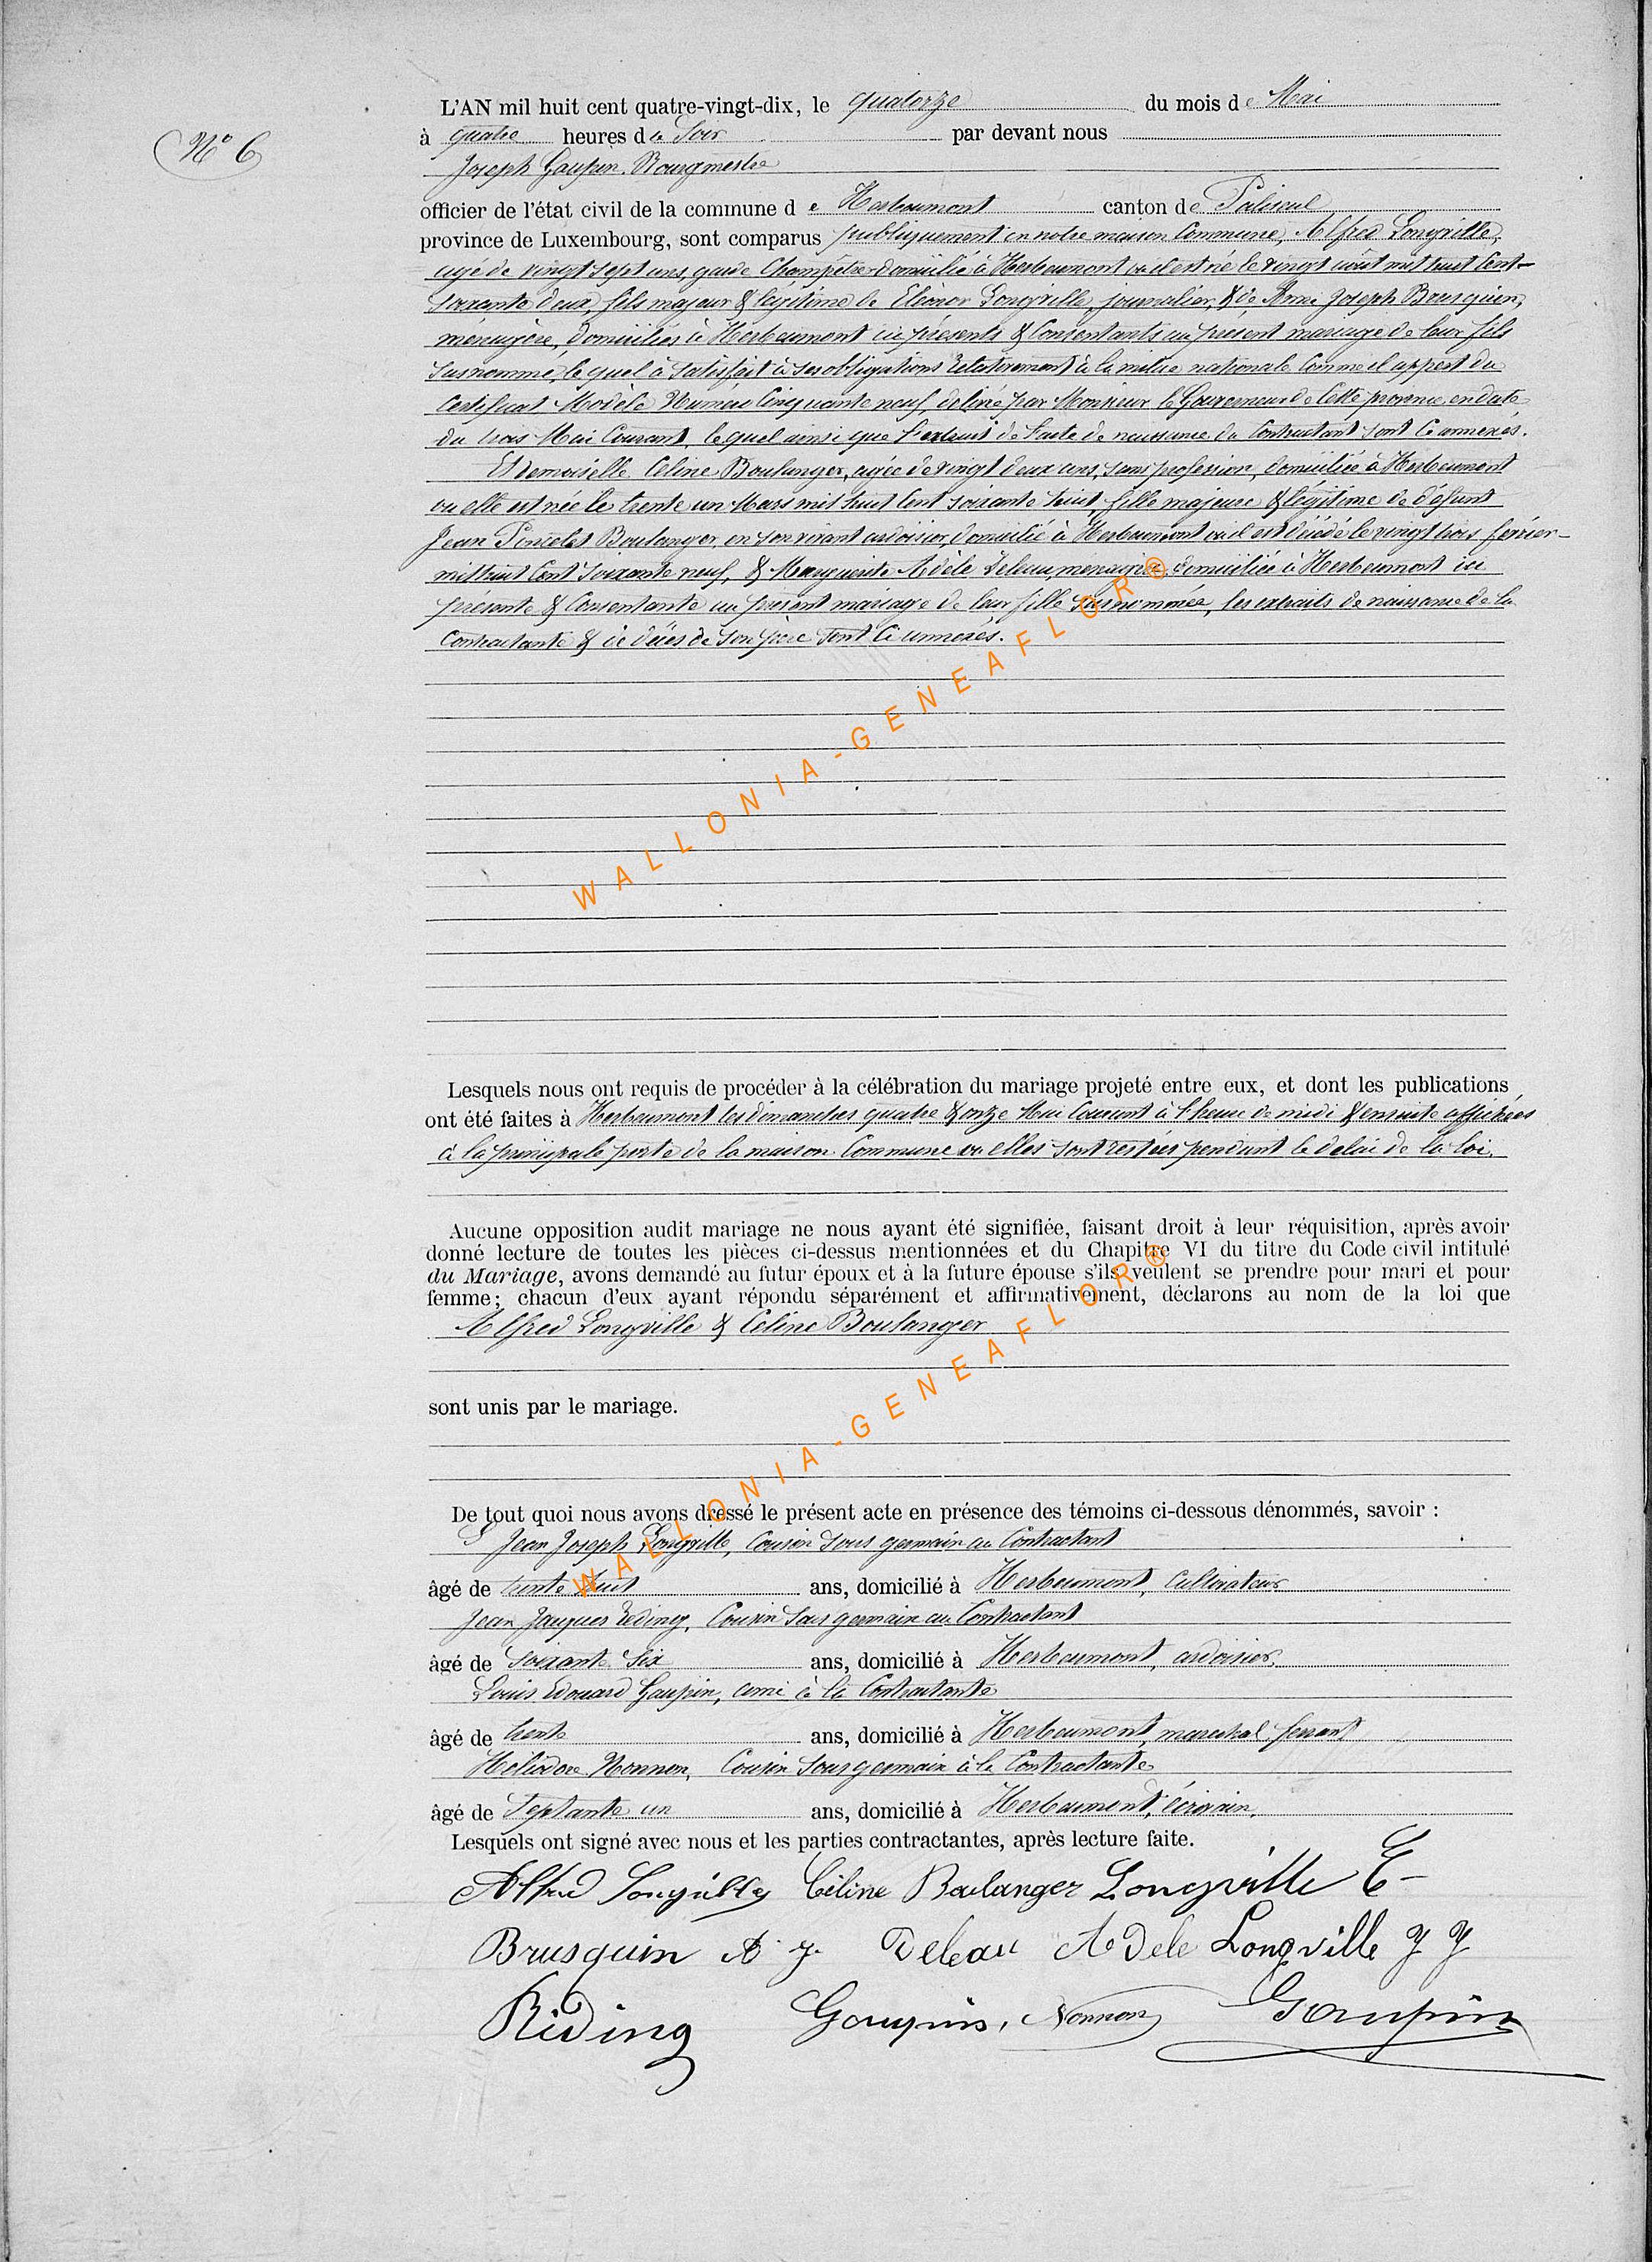 N° 6
L'AN mil huit cent quatre-vingt-dix, le quatorze du mois de Mai
à quatre heures du Soir par devant nous
Joseph Gaupin, Bourgmestre
officier de l'état civil de la commune de Herbeumont canton de Paliseul
province de Luxembourg, sont comparus publiquement en notre maison Commune, Alfred Longville,
agé de vingt sept ans, garde Champêtre domicilié à Herbeumont où il est né le vingt août mil huit Cent
soixante deux, fils majeur & légitime de Eléonor Longville, journalier, & de Joseph Brusquin,
ménagère, domiciliés à Herbeumont ici présents & Consentants au présent mariage de leur fils
susnommé, lequel à satisfait à ses obligations relativement à la milice nationale Comme il appert du
Certificat Modèle Numéro Cinquante neuf, délivré par Monsieur le Gouverneur de Cette province, en date
du trois Mai Courant, lequel ainsi que l'extrait de l'acte de naissance du Contractant sont Ci annexés.
Et demoiselle Céline Boulanger, agée de vingt deux ans, sans profession, domiciliée à Herbeumont
ou elle est née le trente un Mars mil huit Cent soixante huit, fille majeure & légitime de défunt
Jean Poncelet Boulanger, en son vivant ardoisier, domicilié à Herbeumont où il est décédé le vingt trois février
mil huit Cent soixante neuf, & Marguerite Adèle Deleau, ménagère, domiciliée à Herbeumont ici
présente & Consentante au présent mariage de leur fille susnommée, les extraits de naissance de la
Contractante & de décès de son père sont Ci annexés.
WALLONIA-GENEAFLOR®
Lesquels nous ont requis de procéder à la célébration du mariage projeté entre eux, et dont les publications
ont été faites à Herbeumont les dimanches quatre & onze Mai Courant à l'heure de midi & ensuite affichées
à la principale porte de la maison Commune ou elles sont restées pendant le délai de la loi.
Aucune opposition audit mariage ne nous ayant été signifiée, faisant droit à leur réquisition, après avoir
donné lecture de toutes les pièces ci-dessus mentionnées et du Chapitre VI du titre du Code civil intitulé
du Mariage, avons demandé au futur époux et à la future épouse s'ils veulent se prendre pour mari et pour
femme; chacun d'eux ayant répondu séparément et affirmativement, déclarons au nom de la loi que
Alfred Longville & Céline Boulanger
sont unis par le mariage.
WALLONIA-GENEAFLOR®
De tout quoi nous avons dressé le présent acte en présence des témoins ci-dessous dénommés, savoir :
Jean Joseph Longville, Cousin sous germain au Contractant
âgé de trente huit ans, domicilié à Herbeumont, Cultivateur
Jean Jacques Riding, Cousin sous germain au Contractant
âgé de soixante six ans, domicilié à Herbeumont, ardoisier.
Louis Edouard Gaupin, ami à la Contractante
âgé de trente ans, domicilié à Herbeumont, maréchal ferrant
Héliodore Nonnon, Cousin sous germain à la Contractante
âgé de Septante un ans, domicilié à Herbeumont, écrivain.
Lesquels ont signé avec nous et les parties contractantes, après lecture faite.
Alfred Longville Céline Boulanger Longville E
Brusquin A J Deleau Adele Longville J J
Riding Goupin, Nonnon Gaupin